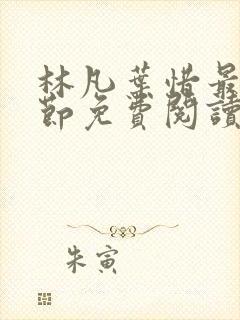 林凡葉惜最
節免費閱讀
朱寅